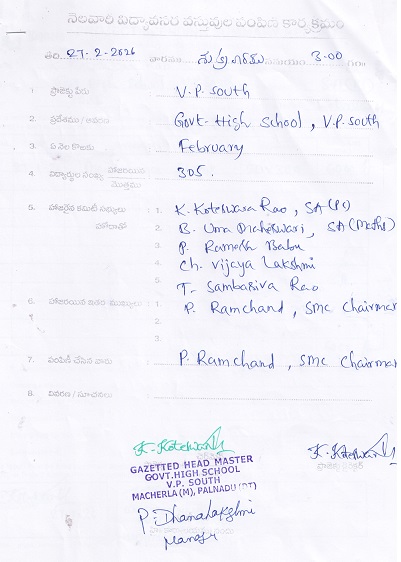 నెలవారీ విద్యావసర వస్తువుల పంపిణీ కార్యక్రమం
తేది 27-2-2026 వారము శుక్రవారము సమయం 3.00 గం॥
1. ప్రాజెక్టు పేరు V.P. South
2. ప్రదేశము / Govt. High School, V.P. South
3. ఏ నెల కొఱకు February
4. విద్యార్థుల సంఖ్య హాజరయిన 305.
మొత్తము
5. హాజరైన కమిటీ సభ్యులు 1. K. Koteswara Rao, SA (PS)
2. B. Uma Maheswari, SA (Maths)
3. P. Ramesh Babu
4. Ch. Vijaya Lakshmi
5. T. Sambasiva Rao
6. హాజరయిన ఇతర ముఖ్యులు 1. P. Ramchand, SMC Chairman
2.
3.
7. పంపిణీ చేసిన వారు P. Ramchand, SMC Chairman
8. వివరణ / సూచనలు
K. Koteswar
GAZETTED HEAD MASTER
GOVT.HIGH SCHOOL
V.P. SOUTH
MACHERLA (M), PALNADU (DT)
K. Koteswar
P. Dhanalakshmi
Manager